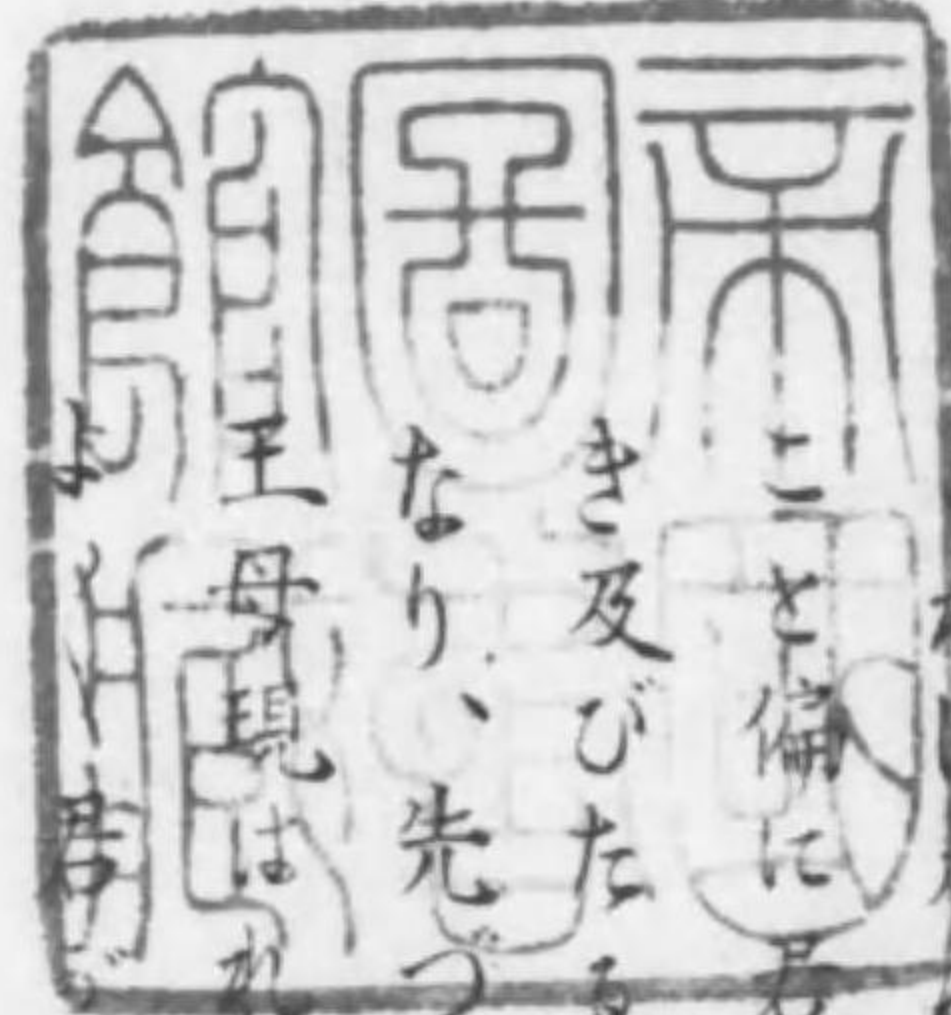 帝國
圖書
館藏
こと偏に君
き及びたる
なり、先づ
王母現はれ
よ 君が